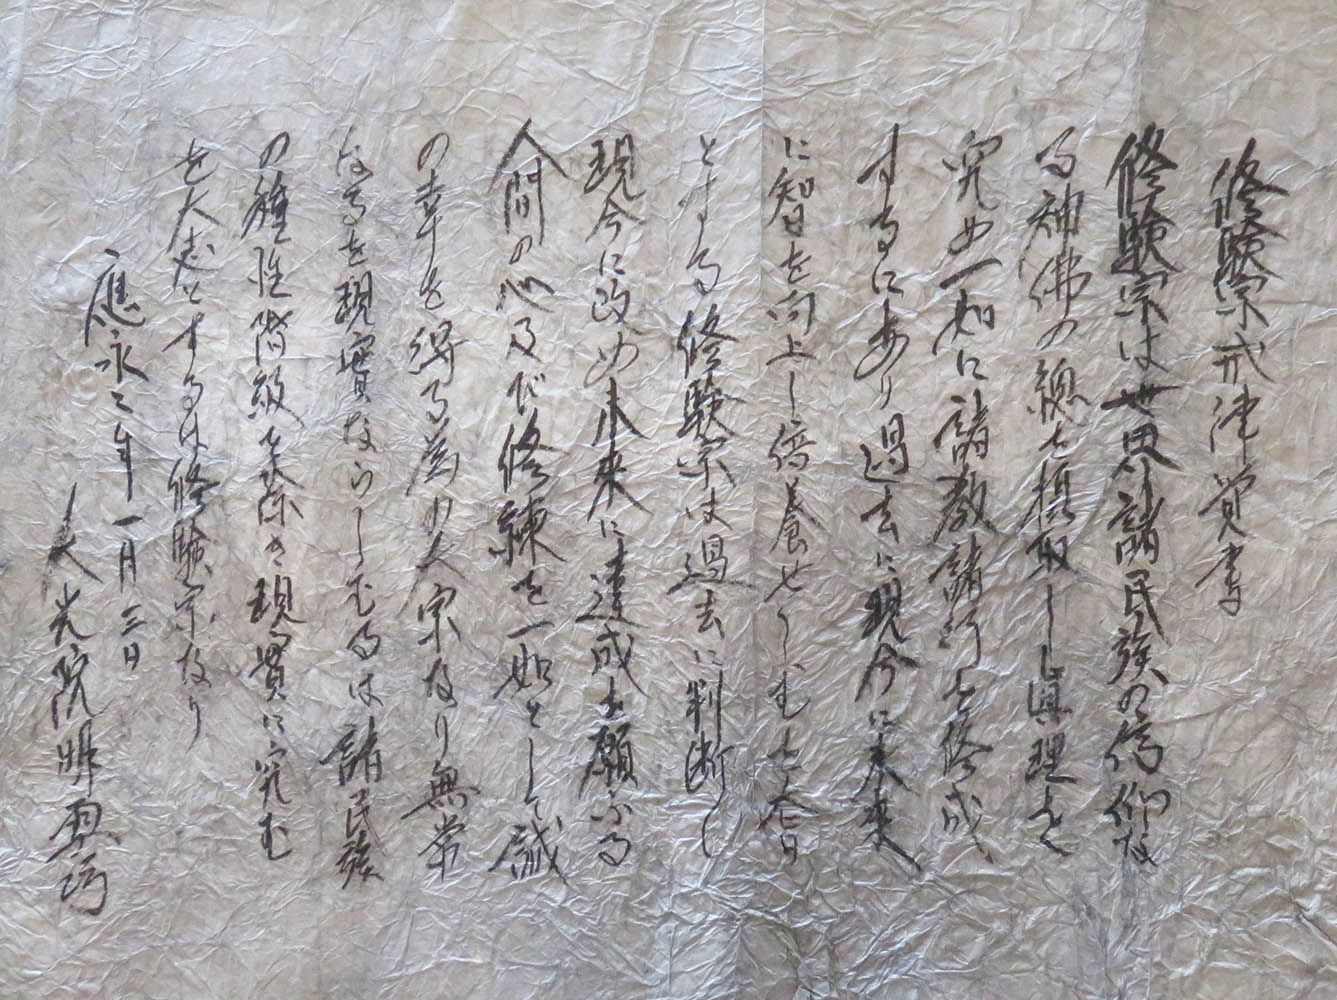 修験宗戒津覚書
修験宗は世界諸民族の信仰な
る神佛の總を摂取し眞理を
究め一如に諸教諸行を修成
するにあり過去に現今に未来
に智を向上し信養せしむを今日
とする修験宗は過去に判断し
現今に改め未来に達成を願ふる
人間の心及び修練を一如として誠
の幸を得る為の大宗なり無常
なるを現實ならしむるは諸民族
の種性階級を除き現實に究む
を大志とするは修験宗なり
應永二年一月三日
大光院明